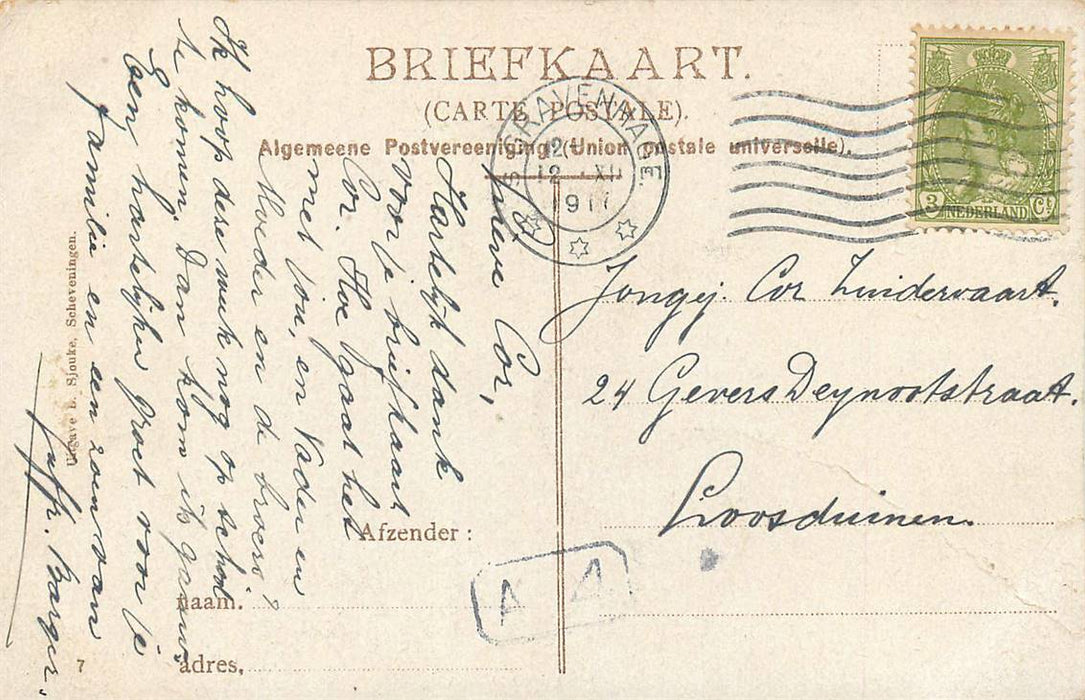 BRIEFKAART.
(CARTE POSTALE).
Algemeene Postvereeniging (Union postale universelle).
'S GRAVENHAGE.
12
12 XI
1911
3 NEDERLAND Ct
Jongej. Cor Zuidervaart.
24 Gevers Deynootstraat.
Loosduinen.
Lieve Cor,
Hartelijk dank
voor je briefkaart
Cor. Hoe gaat het
met jou, en Vader en
Moeder en de broers?
Ik hoop deze week nog op school
te komen, dan kom ik gauw.
Een hartelijke groet voor je
familie en een zoen van
Juffr. Barger.
Afzender:
naam.
adres,
Uitgave B. Sjouke, Scheveningen.
7
A A